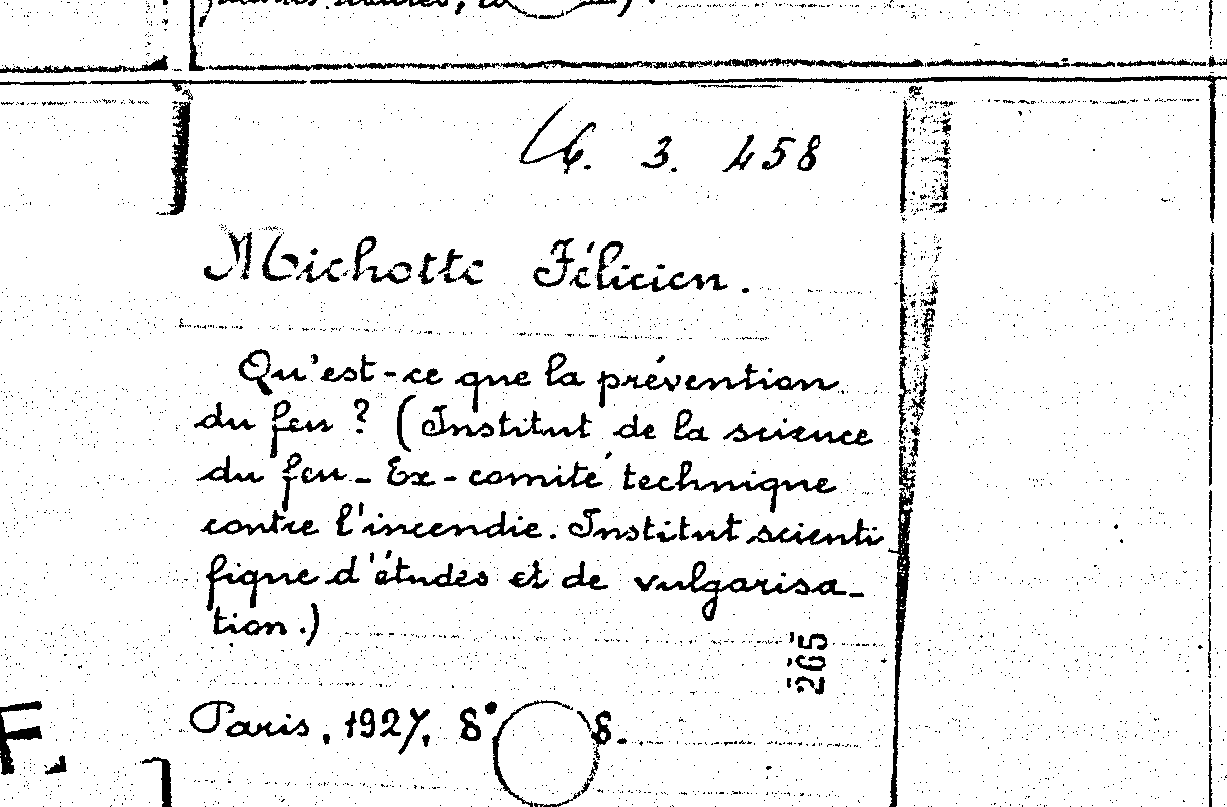 16. 3. 458
Michotte Félicien.
Qu'est-ce que la prévention
du feu ? (Institut de la science
du feu - Ex-comité technique
contre l'incendie. Institut scienti
fique d'études et de vulgarisa-
tion.)
265
Paris, 1927, 8° 8.
F.